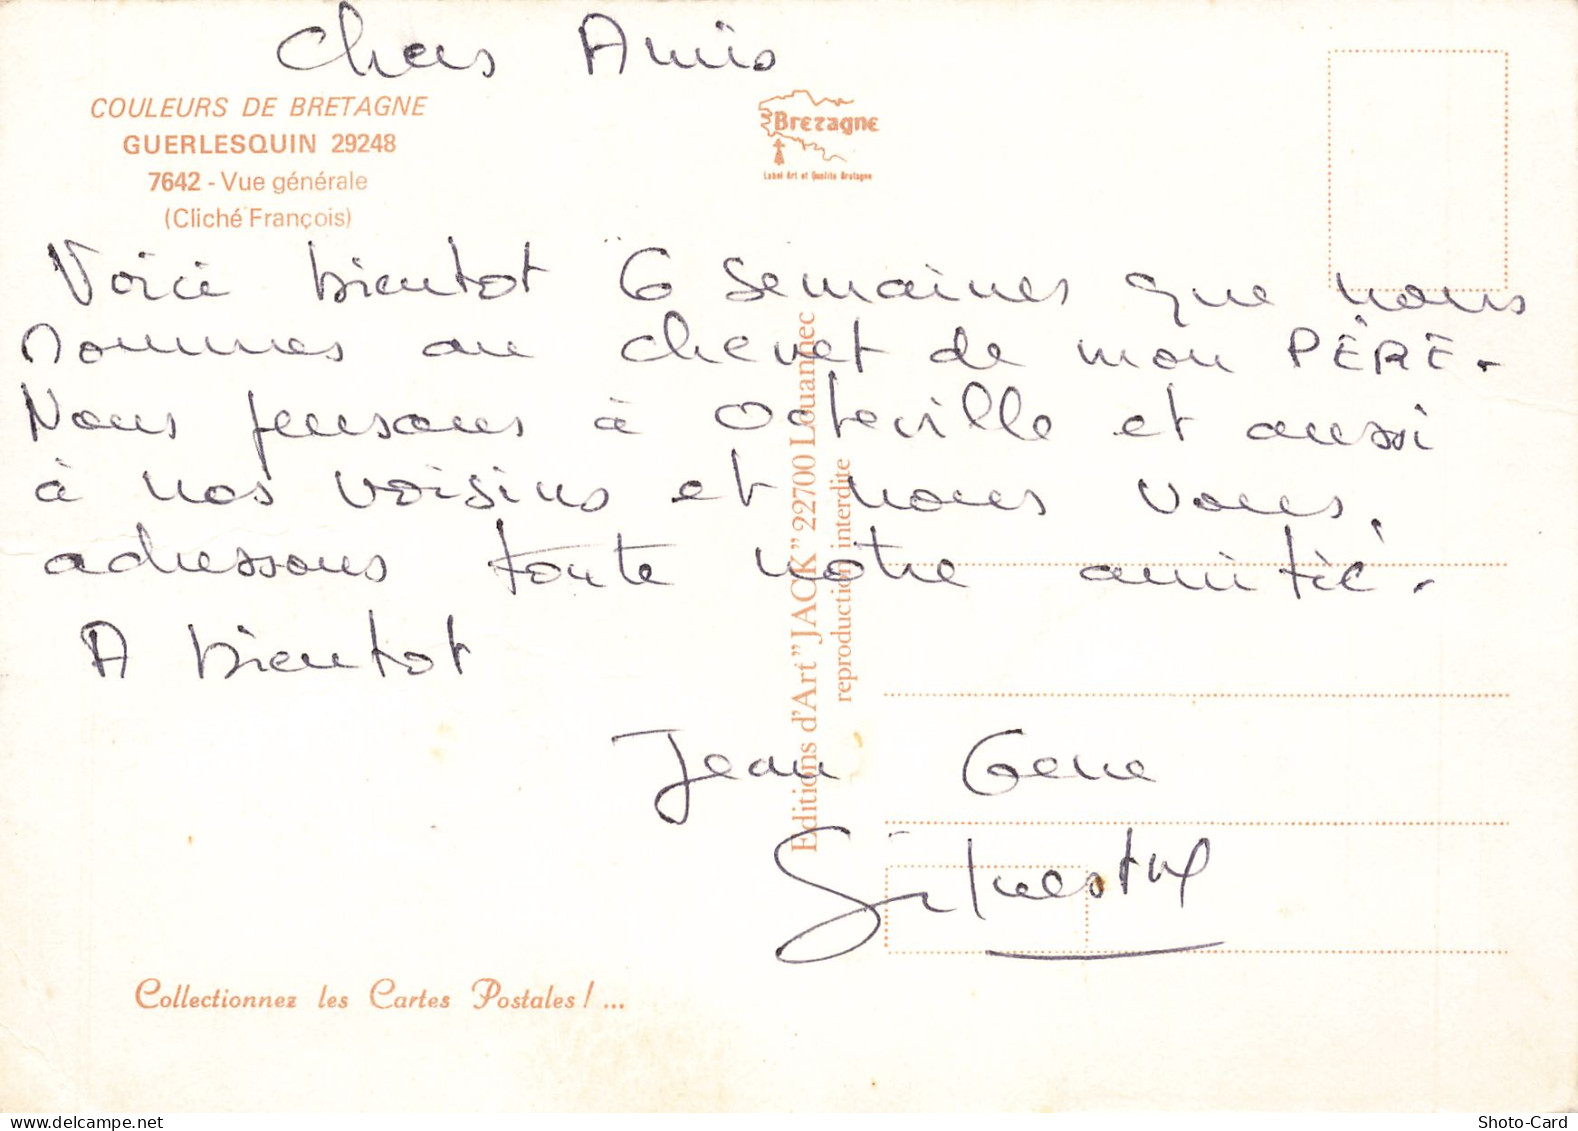 Chers Amis
COULEURS DE BRETAGNE
GUERLESQUIN 29248
7642 - Vue générale
(Cliché François)
Bretagne
Label Art et Qualité Bretagne
Voici bientot 6 semaines que nous
sommes au chevet de mon PÈRE.
Nous pensons à Octeville et aussi
à nos voisins et nous vous
adressons toute notre amitié.
A bientot
Jean Gene
Editions d'Art "JACK" 22700 Louannec
reproduction interdite
Collectionnez les Cartes Postales ! ...
delcampe.net
Shoto-Card